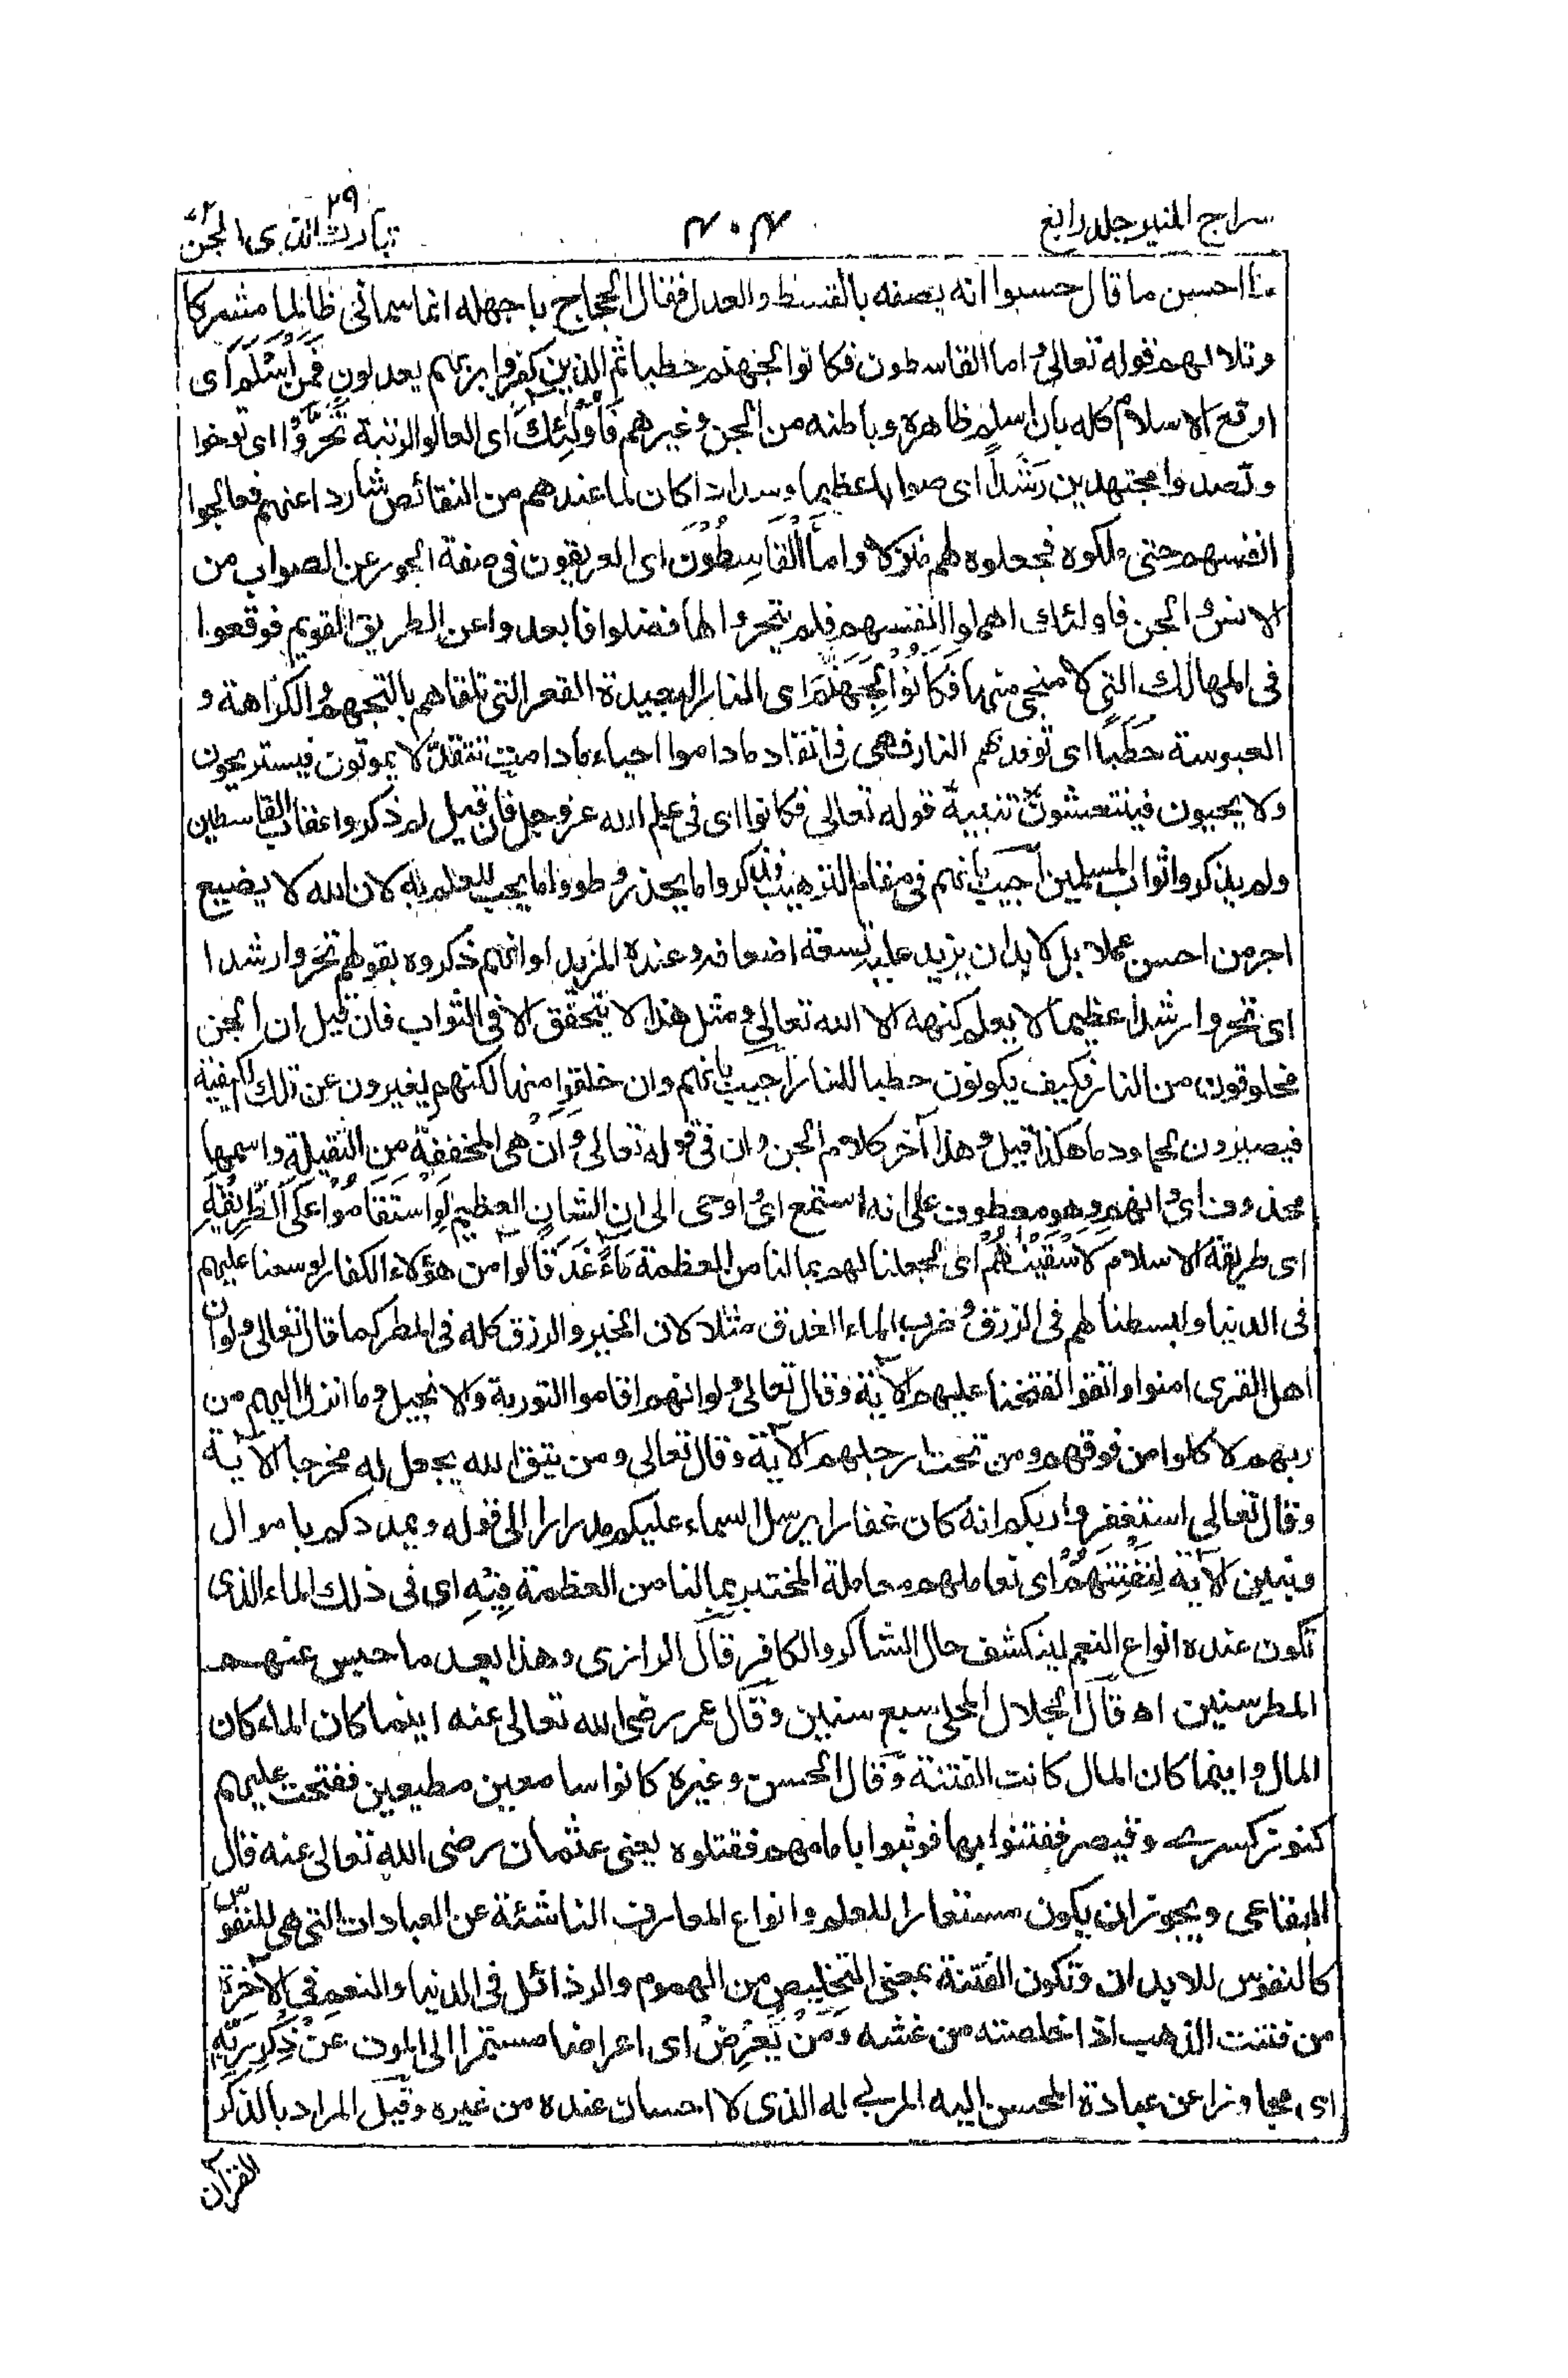 سراج المنير جلد رابع
۴۰۴
تبارك الذى ۲۹ الجن ۷۲
ما احسن ما قال حسبوا انه يصفه بالقسط والعدل فقال الحجاج يا جهله انما سمانى ظالما مشركا
وتلا لهم قوله تعالى واما القاسطون فكانوا لجهنم حطبا ثم الذين كفروا بربهم يعدلون فَمَنْ أَسْلَمَ اى
اوقع الاسلام كله بان اسلم ظاهره وباطنه من الجن وغيرهم فَأُولَٰئِكَ اى العالو الرتبة تَحَرَّوْا اى توخوا
وقصدوا مجتهدين رَشَدًا اى صوابا عظيما وسدادا كان لما عندهم من النقائص شاردا عنهم فعالجوا
انفسهم حتى ملكوه فجعلوه لهم منزلا وَأَمَّا الْقَاسِطُونَ اى العريقون فى صفة الجور عن الصواب من
الانس والجن فاولئك اهملوا انفسهم فلم يتحروا لها فضلوا فابعدوا عن الطريق القويم فوقعوا
فى المهالك التى لا منجى منها فَكَانُوا لِجَهَنَّمَ اى النار البعيدة القعر التى تلقاهم بالتجهم والكراهة و
العبوسة حَطَبًا اى توقد بهم النار فهى فى اتقاد ما داموا احياء ما دامت تتقد لا يموتون فيستريحون
ولا يحيون فينتعشون تنبيه قوله تعالى فكانوا اى فى علم الله عز وجل فان قيل لم ذكروا عقاب القاسطين
ولم يذكروا ثواب المسلمين اجيب بانهم فى مقام الترهيب فذكروا ما يحذر وطووا ما يحب للعلم به لان الله لا يضيع
اجر من احسن عملا بل لا بد ان يزيد عليه تسعة اضعافه وعنده المزيد او انهم ذكروه بقولهم تحروا رشدا
اى تحروا رشدا عظيما لا يعلم كنهه الا الله تعالى ومثل هذا لا يتحقق الا فى الثواب فان قيل ان الجن
مخلوقون من النار فكيف يكونون حطبا للنار اجيب بانهم وان خلقوا منها لكنهم يغيرون عن تلك الكيفية
فيصيرون لحما ودما هكذا قيل وهذا آخر كلام الجن وان فى قوله تعالى وَأَنْ هى المخففة من الثقيلة واسمها
محذوف اى انهم وهو معطوف على انه استمع اى اوحى الى ان الشان العظيم لَوِ اسْتَقَامُوا عَلَى الطَّرِيقَةِ
اى طريقة الاسلام لَأَسْقَيْنَاهُمْ اى لجعلنا لهم بما لنا من العظمة مَاءً غَدَقًا لوامن هؤلاء الكفار لوسعنا عليهم
فى الدنيا ولبسطنا لهم فى الرزق وضرب الماء الغدق مثلا لان الخير والرزق كله فى المطر كما قال تعالى ولو ان
اهل القرى امنوا واتقوا لفتحنا عليهم الآية وقال تعالى ولو انهم اقاموا التورىة والانجيل وما انزل اليهم من
ربهم لاكلوا من فوقهم ومن تحت ارجلهم الآية وقال تعالى ومن يتق الله يجعل له مخرجا الآية
وقال تعالى استغفروا ربكم انه كان غفارا يرسل السماء عليكم مدرارا الى قوله ويمددكم باموال
وبنين الآية لِنَفْتِنَهُمْ اى نعاملهم معاملة المختبر بما لنا من العظمة فِيهِ اى فى ذلك الماء الذى
تكون عنده انواع النعم لينكشف حال الشاكر والكافر قال الرازى وهذا بعد ما حبس عنهم
المطر سنين اه قال الجلال المحلى سبع سنين وقال عمر رضى الله تعالى عنه اينما كان الماء كان
المال واينما كان المال كانت الفتنة وقال الحسن وغيره كانوا سامعين مطيعين ففتحت عليهم
كنوز كسرے وقيصر ففتنوا بها فوثبوا بامامهم فقتلوه يعنى عثمان رضى الله تعالى عنه قال
البقاعى ويجوز ان يكون مستعارا للعلم وانواع المعارف الناشئة عن العبادات التى هى للنفوس
كالنفوس للابدان وتكون الفتنة بمعنى التخليص من الهموم والرذائل فى الدنيا والنعم فى الآخرة
من فتنت الذهب اذا خلصته من غشه وَمَنْ يُعْرِضْ اى اعراضا مستمرا الى الموت عَنْ ذِكْرِ رَبِّهِ
اى مجاوزا عن عبادة المحسن اليه المربى له الذى لا احسان عنده من غيره وقيل المراد بالذكر
القرآن